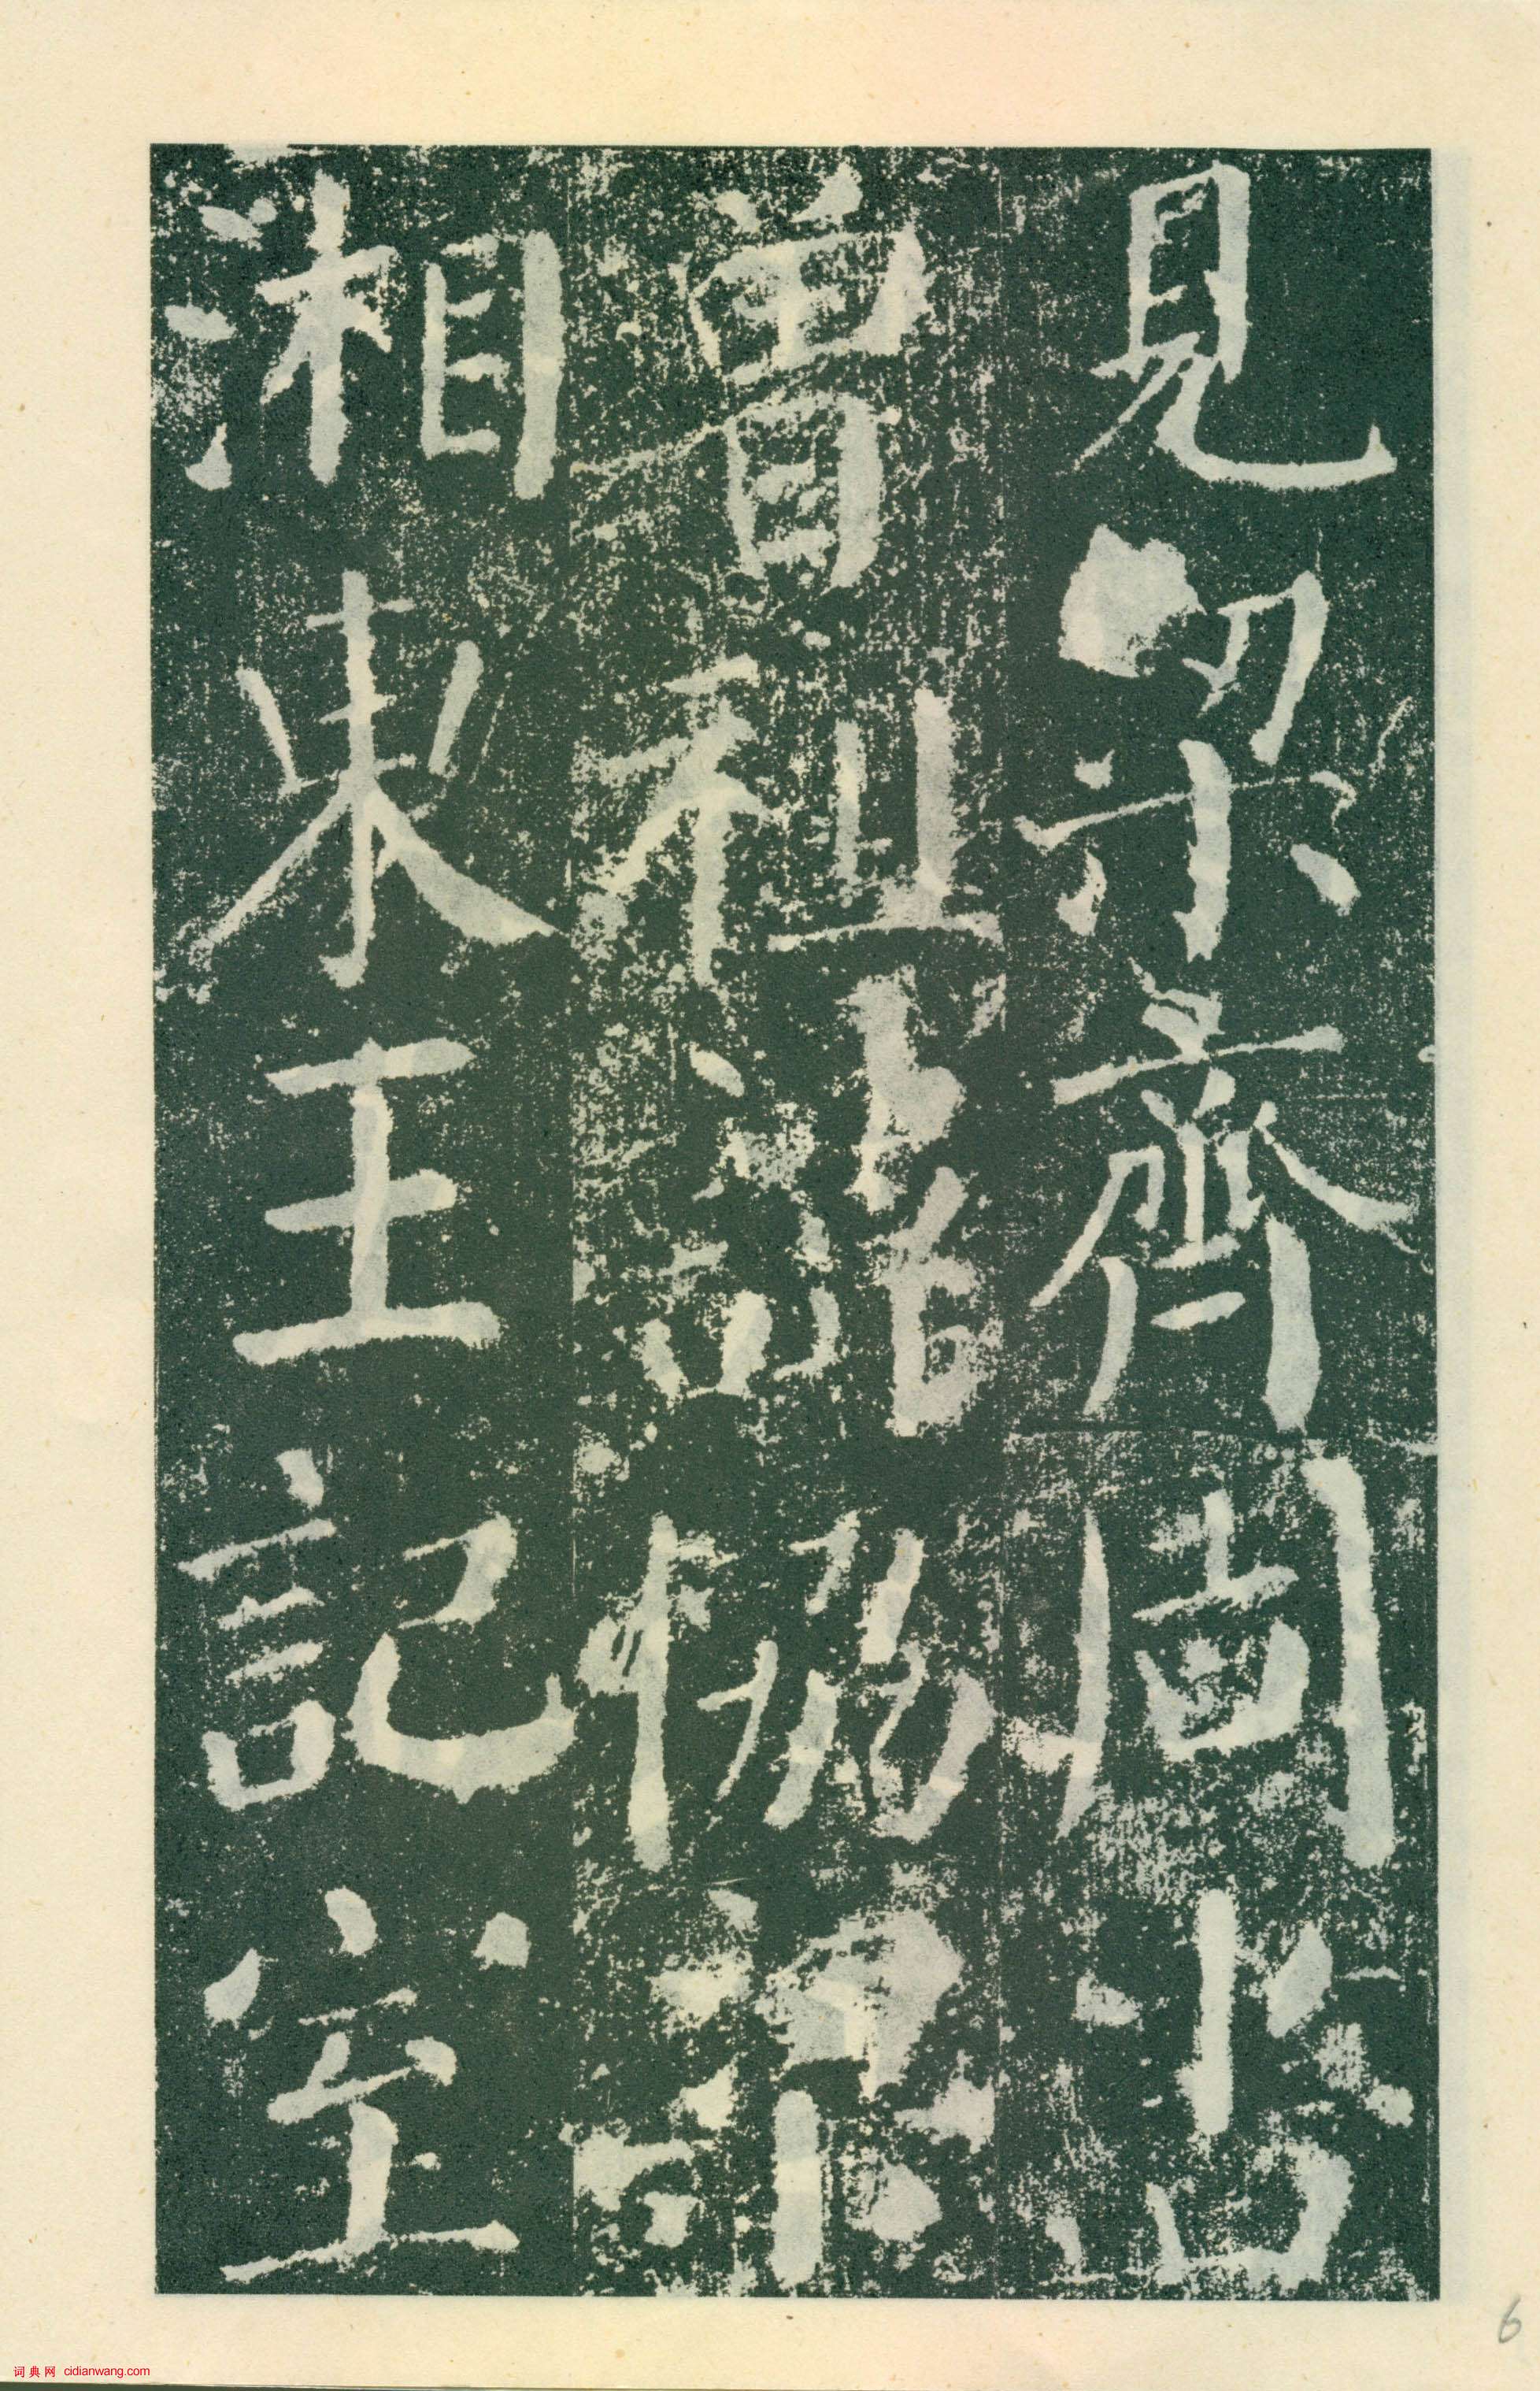 見梁齊周書
曾祖諱協梁
湘東王記室
6
词典网 cidianwang.com